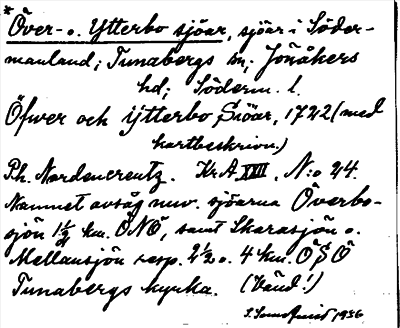 * Över- o. Ytterbo sjöar, sjöar i Söder-
manland; Tunabergs sn; Jönåkers
hd; Söderm. l.
Öfwer och ijtterbo Siöar, 1722 (med
kartbeskrivn.)
Ph. Nordencreutz. KrA XVIII, N:o 24.
Namnet avsåg nuv. sjöarna Överbo-
sjön 1½ km. ÖNÖ, samt Skarasjön o.
Mellansjön resp. 2½ o. 4 km. ÖSÖ
Tunabergs kyrka. (Bänd!)
1936